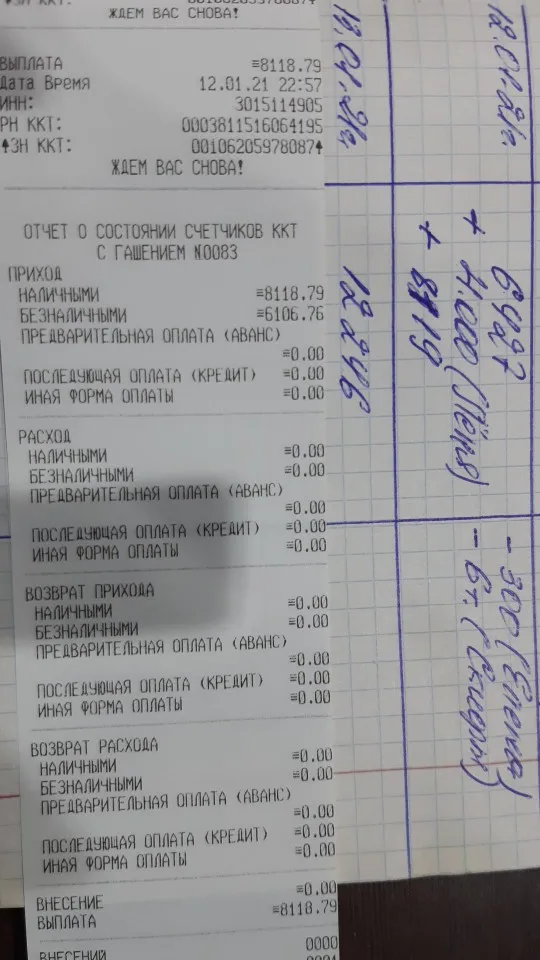 ЖДЕМ ВАС СНОВА!
ВЫПЛАТА ≡8118.79
Дата Время 12.01.21 22:57
ИНН: 3015114905
РН ККТ: 0003811516064195
↑ЗН ККТ: 00106205978087↑
ЖДЕМ ВАС СНОВА!
ОТЧЕТ О СОСТОЯНИИ СЧЕТЧИКОВ ККТ
С ГАШЕНИЕМ N0083
ПРИХОД
НАЛИЧНЫМИ ≡8118.79
БЕЗНАЛИЧНЫМИ ≡6106.76
ПРЕДВАРИТЕЛЬНАЯ ОПЛАТА (АВАНС)
≡0.00
ПОСЛЕДУЮЩАЯ ОПЛАТА (КРЕДИТ) ≡0.00
ИНАЯ ФОРМА ОПЛАТЫ ≡0.00
РАСХОД
НАЛИЧНЫМИ ≡0.00
БЕЗНАЛИЧНЫМИ ≡0.00
ПРЕДВАРИТЕЛЬНАЯ ОПЛАТА (АВАНС)
≡0.00
ПОСЛЕДУЮЩАЯ ОПЛАТА (КРЕДИТ) ≡0.00
ИНАЯ ФОРМА ОПЛАТЫ ≡0.00
ВОЗВРАТ ПРИХОДА
НАЛИЧНЫМИ ≡0.00
БЕЗНАЛИЧНЫМИ ≡0.00
ПРЕДВАРИТЕЛЬНАЯ ОПЛАТА (АВАНС)
≡0.00
ПОСЛЕДУЮЩАЯ ОПЛАТА (КРЕДИТ) ≡0.00
ИНАЯ ФОРМА ОПЛАТЫ ≡0.00
ВОЗВРАТ РАСХОДА
НАЛИЧНЫМИ ≡0.00
БЕЗНАЛИЧНЫМИ ≡0.00
ПРЕДВАРИТЕЛЬНАЯ ОПЛАТА (АВАНС)
≡0.00
ПОСЛЕДУЮЩАЯ ОПЛАТА (КРЕДИТ) ≡0.00
ИНАЯ ФОРМА ОПЛАТЫ ≡0.00
ВНЕСЕНИЕ ≡0.00
ВЫПЛАТА ≡8118.79
ВНЕСЕНИЙ 0000
12.01.21г.
6427
+ (Лёня)
+ 8119
- 300 (Елена)
- 6т.
12.01.21г.
12246